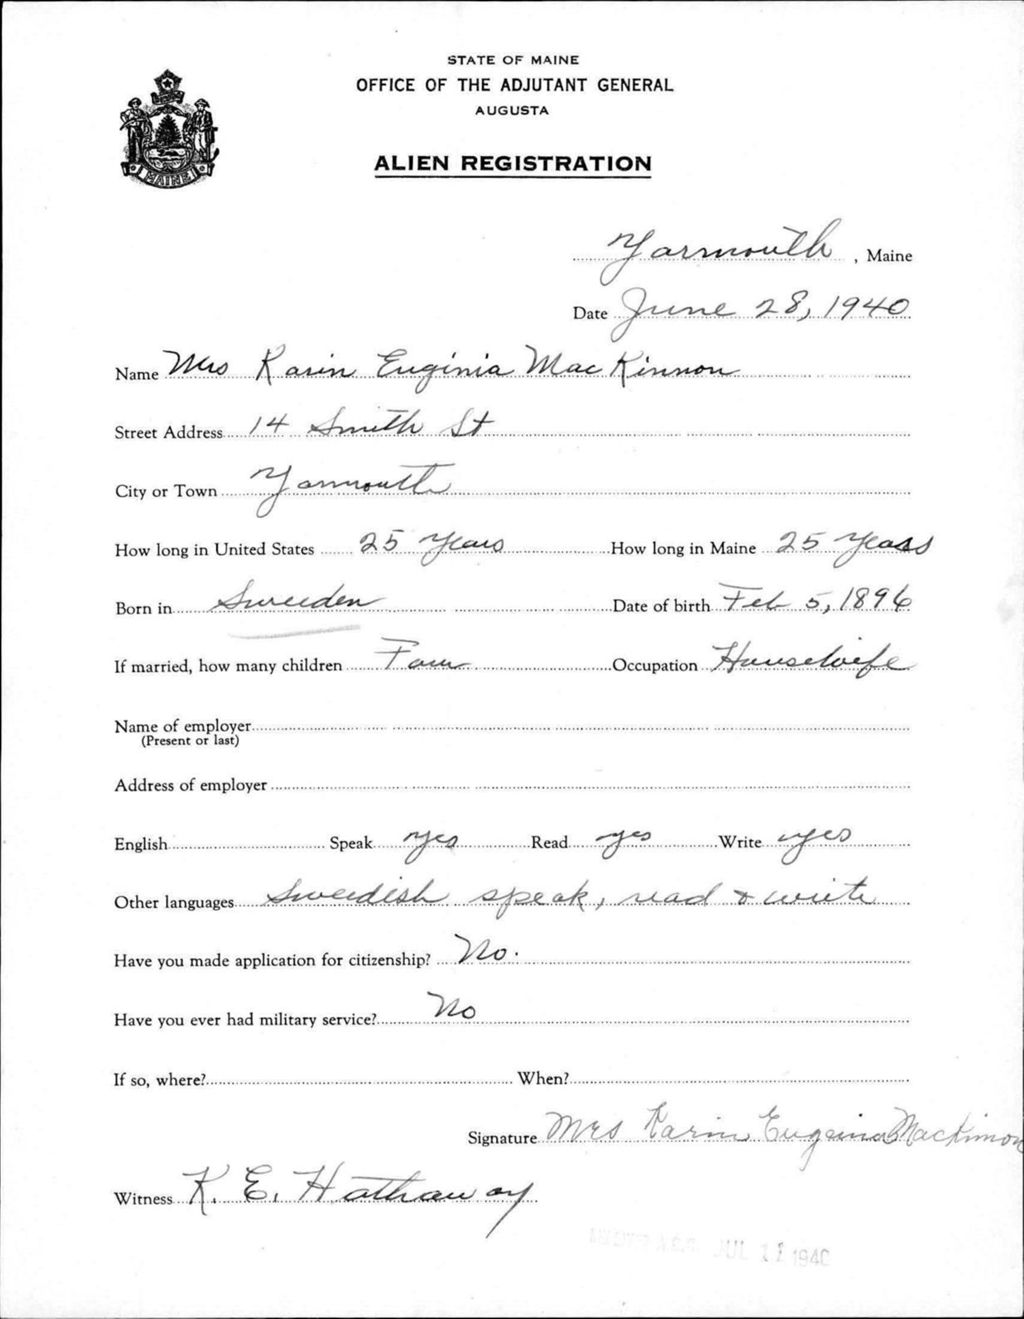 STATE OF MAINE
OFFICE OF THE ADJUTANT GENERAL
AUGUSTA
ALIEN REGISTRATION
MAINE
Yarmouth, Maine
Date June 28, 1940
Name Mrs Karin Euginia MacKinnon
Street Address 14 Smith St
City or Town Yarmouth
How long in United States 25 Years How long in Maine 25 Years
Born in Sweden Date of birth Feb 5, 1896
If married, how many children Four Occupation Housewife
Name of employer
(Present or last)
Address of employer
English Speak yes Read yes Write yes
Other languages Swedish speak, read & write
Have you made application for citizenship? No.
Have you ever had military service? No
If so, where? When?
Signature Mrs Karin Eugeina MacKinnon
Witness K. E. Hathaway
JUL 11 1940